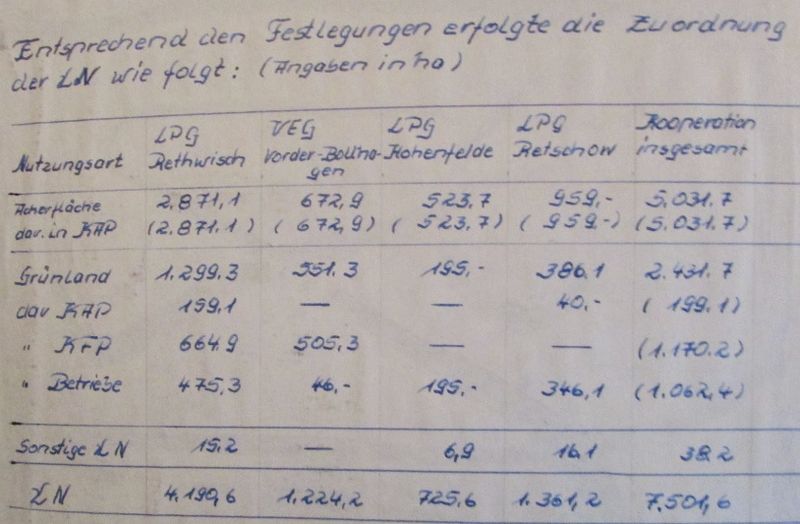 Entsprechend den Festlegungen erfolgte die Zuordnung
der LN wie folgt: (Angaben in ha)
LPG VEG LPG LPG Kooperation
Nutzungsart Rethwisch Vorder-Bollha- Hohenfelde Retschow insgesamt
gen
Ackerfläche 2.871,1 672,9 523,7 959,- 5.031.7
dav. in KAP (2.871.1) (672,9) (523,7) (959-) (5.031.7)
Grünland 1.299.3 551.3 195,- 386.1 2.431.7
dav KAP 159.1 — — 40.- (199.1)
" KFP 664.9 505,3 — — (1.170.2)
" Betriebe 475,3 46,- 195,- 346,1 (1.062,4)
Sonstige LN 15.2 — 6,9 16.1 38.2
LN 4.190,6 1.224,2 725,6 1.361,2 7.501,6